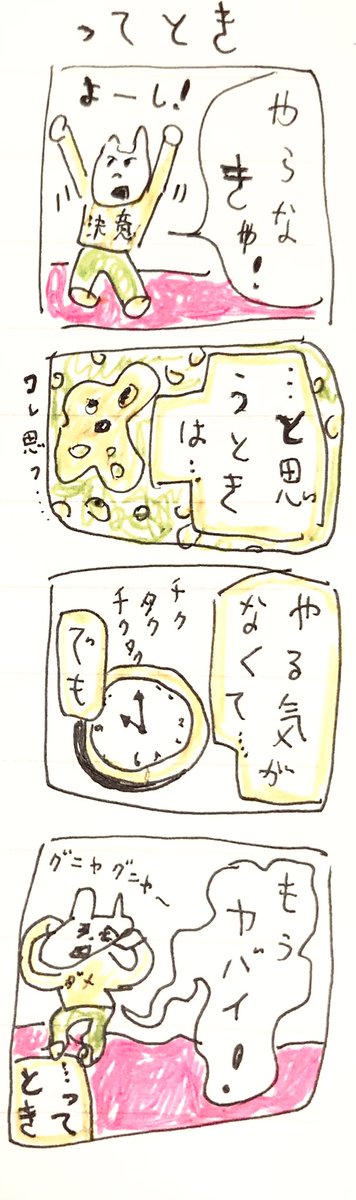 ってとき
やらな
きゃ！
よーし！
決意
…と思
うとき
は…
やる気が
なくて…
チク
タク
チク
タク
でも
もう
ヤバイ！
グニャグニャ～
ダメ
…って
とき